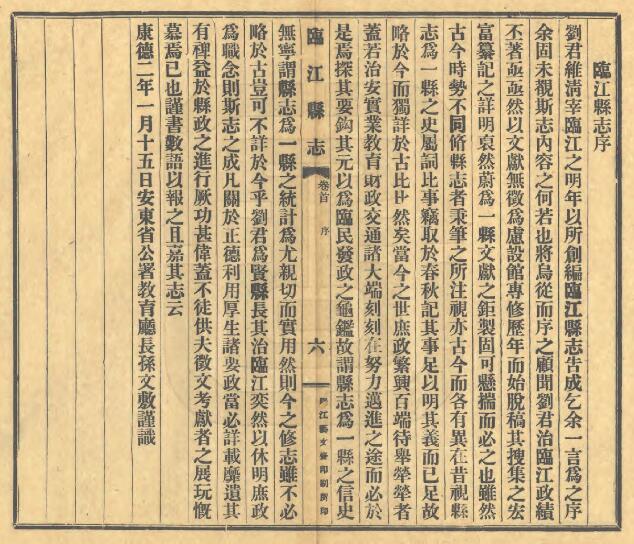 臨江縣志序
劉君維清宰臨江之明年以所創編臨江縣志告成乞余一言爲之序
余固未覩斯志內容之何若也將烏從而序之顧聞劉君治臨江政績
丕著亟亟然以文獻無徵爲慮設館專修歷年而始脫稿其搜集之宏
富纂記之詳明裒然蔚爲一縣文獻之鉅製固可懸揣而必之也雖然
古今時勢不同脩縣志者秉筆之所注視亦古今而各有異在昔視縣
志爲一縣之史屬詞比事竊取於春秋記其事足以明其義而已足故
略於今而獨詳於古比比然矣當今之世庶政繁興百端待舉犖犖者
蓋若治安實業教育財政交通諸大端刻刻在努力邁進之途而必於
是焉探其要鈎其元以爲臨民發政之龜鑑故謂縣志爲一縣之信史
臨江縣志
卷首
序
六
江縣文
印刷所印
無寧謂縣志爲一縣之統計爲尤親切而實用然則今之修志雖不必
略於古豈可不詳於今乎劉君爲賢縣長其治臨江奕然以休明庶政
爲職念則斯志之成凡關於正德利用厚生諸要政當必詳載靡遺其
有裨益於縣政之進行厥功甚偉蓋不徒供夫徵文考獻者之展玩慨
慕焉已也謹書數語以報之且嘉其志云
康德二年一月十五日安東省公署教育廳長孫文敷謹識